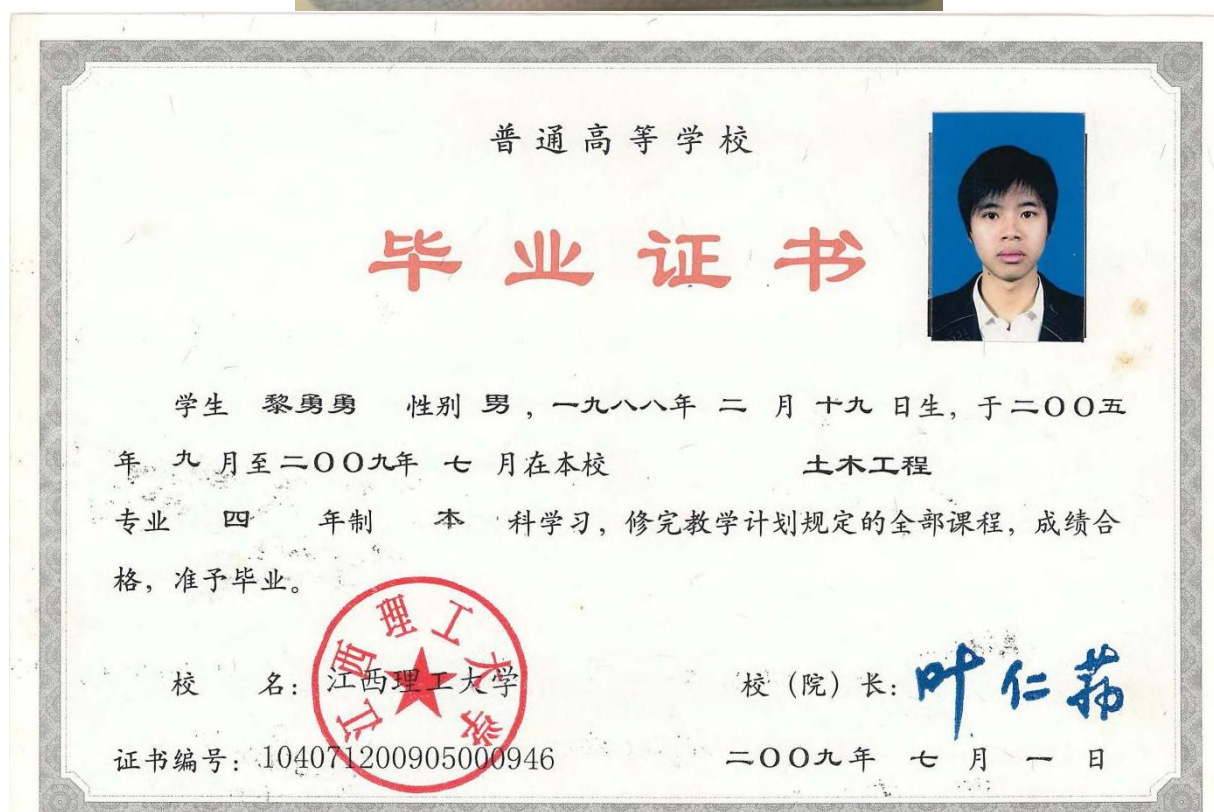 普通高等学校
毕业证书
学生 黎勇勇 性别 男，一九八八年 二 月 十九 日生，于二〇〇五
年 九 月至二〇〇九年 七 月在本校 土木工程
专业 四 年制 本 科学习，修完教学计划规定的全部课程，成绩合
格，准予毕业。
江西理工大学
校 名：江西理工大学 校（院）长：叶仁荪
证书编号：104071200905000946 二〇〇九年 七 月 一 日